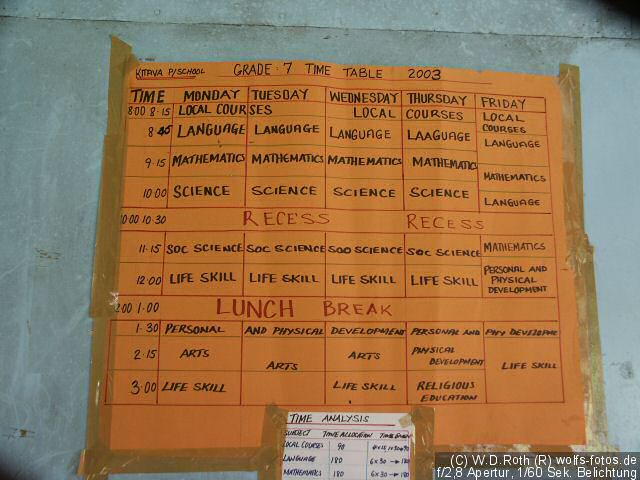 KITAVA P/SCHOOL GRADE : 7 TIME TABLE 2003
TIME MONDAY TUESDAY WEDNESDAY THURSDAY FRIDAY
8:00 8.15 LOCAL COURSES LOCAL COURSES LOCAL COURSES
LANGUAGE LANGUAGE LANGUAGE LAAGUAGE LANGUAGE
9.15 MATHEMATICS MATHEMATICS MATHEMATICS MATHEMATICS MATHEMATICS
10:00 SCIENCE SCIENCE SCIENCE SCIENCE LANGUAGE
10:30 RECESS RECESS
11.15 SOC SCIENCE SOC SCIENCE SOC SCIENCE MATHEMATICS
12.00 LIFE SKILL LIFE SKILL LIFE SKILL LIFE SKILL PERSONAL AND PHYSICAL DEVELOPMENT
1.00 LUNCH BREAK
1.30 PERSONAL AND PHYSICAL DEVELOPMENT PERSONAL AND PHY DEVELOPME
2.15 ARTS ARTS ARTS PHYSICAL DEVELOPMENT LIFE SKILL
3.00 LIFE SKILL LIFE SKILL RELIGIOUS EDUCATION
TIME ANALYSIS
SUBJECT TIME ALLOCATION TIME
LOCAL COURSES 90
LANGUAGE 180 6x30 → 180
MATHEMATICS 180 6x30 → 180
(C) W.D.Roth (R) wolfs-fotos.de
f/2,8 Apertur, 1/60 Sek. Belichtung